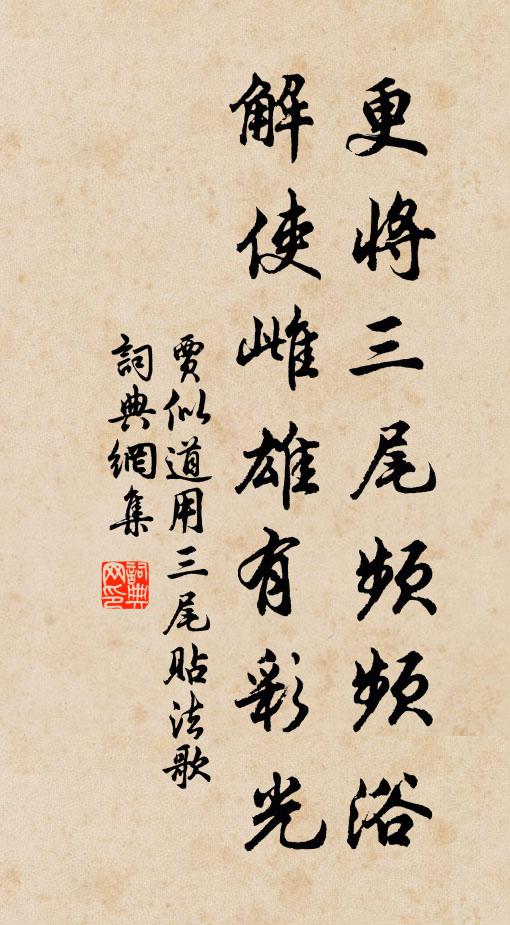 更将三尾频频浴
解使雌雄有彩光
賈似道用三尾貼法歌
詞典網集
詞典網印